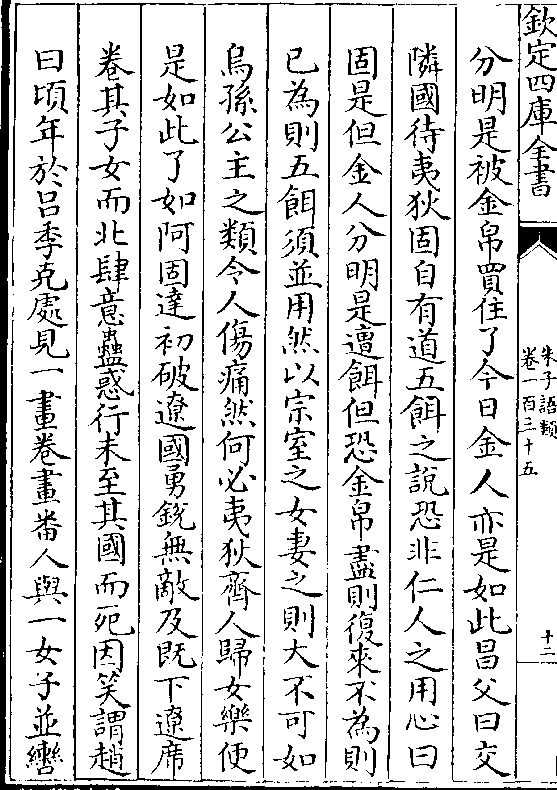 欽定四庫全書
朱子語類
卷一百三十五
十二
分明是被金帛買住了今日金人亦是如此昌父曰交
隣國待夷狄固自有道五餌之說恐非仁人之用心曰
固是但金人分明是遭餌但恐金帛盡則復來不為則
已為則五餌須並用然以宗室之女妻之則大不可如
烏孫公主之類令人傷痛然何必夷狄齊人歸女樂便
是如此了如阿固達初破遼國勇銳無敵及既下遼席
卷其子女而北肆意蠱惑行未至其國而死因笑謂趙
曰頃年於呂季克處見一畫卷畫番人與一女子並轡